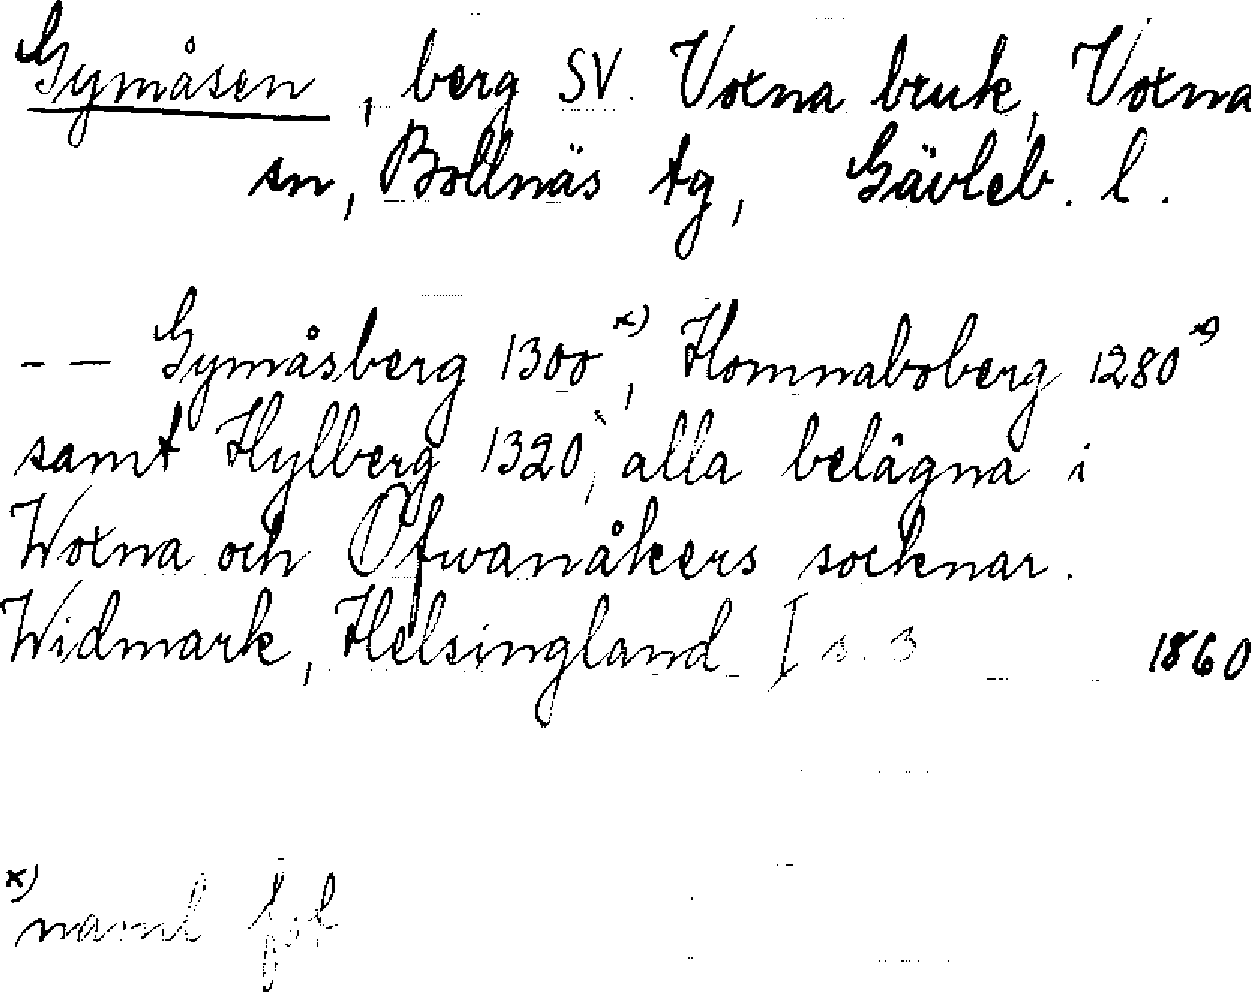 Gymåsen, berg SV. Voxna bruk, Voxna
sn, Bollnäs tg, Gävleb. l.
- - Gymåsberg 1300 x), Homnaboberg 1280 x)
samt Hylberg 1320, alla belägna i
Woxna och Ofwanåkers socknar.
Widmark, Helsingland I s. 3 1860
x) naml fot